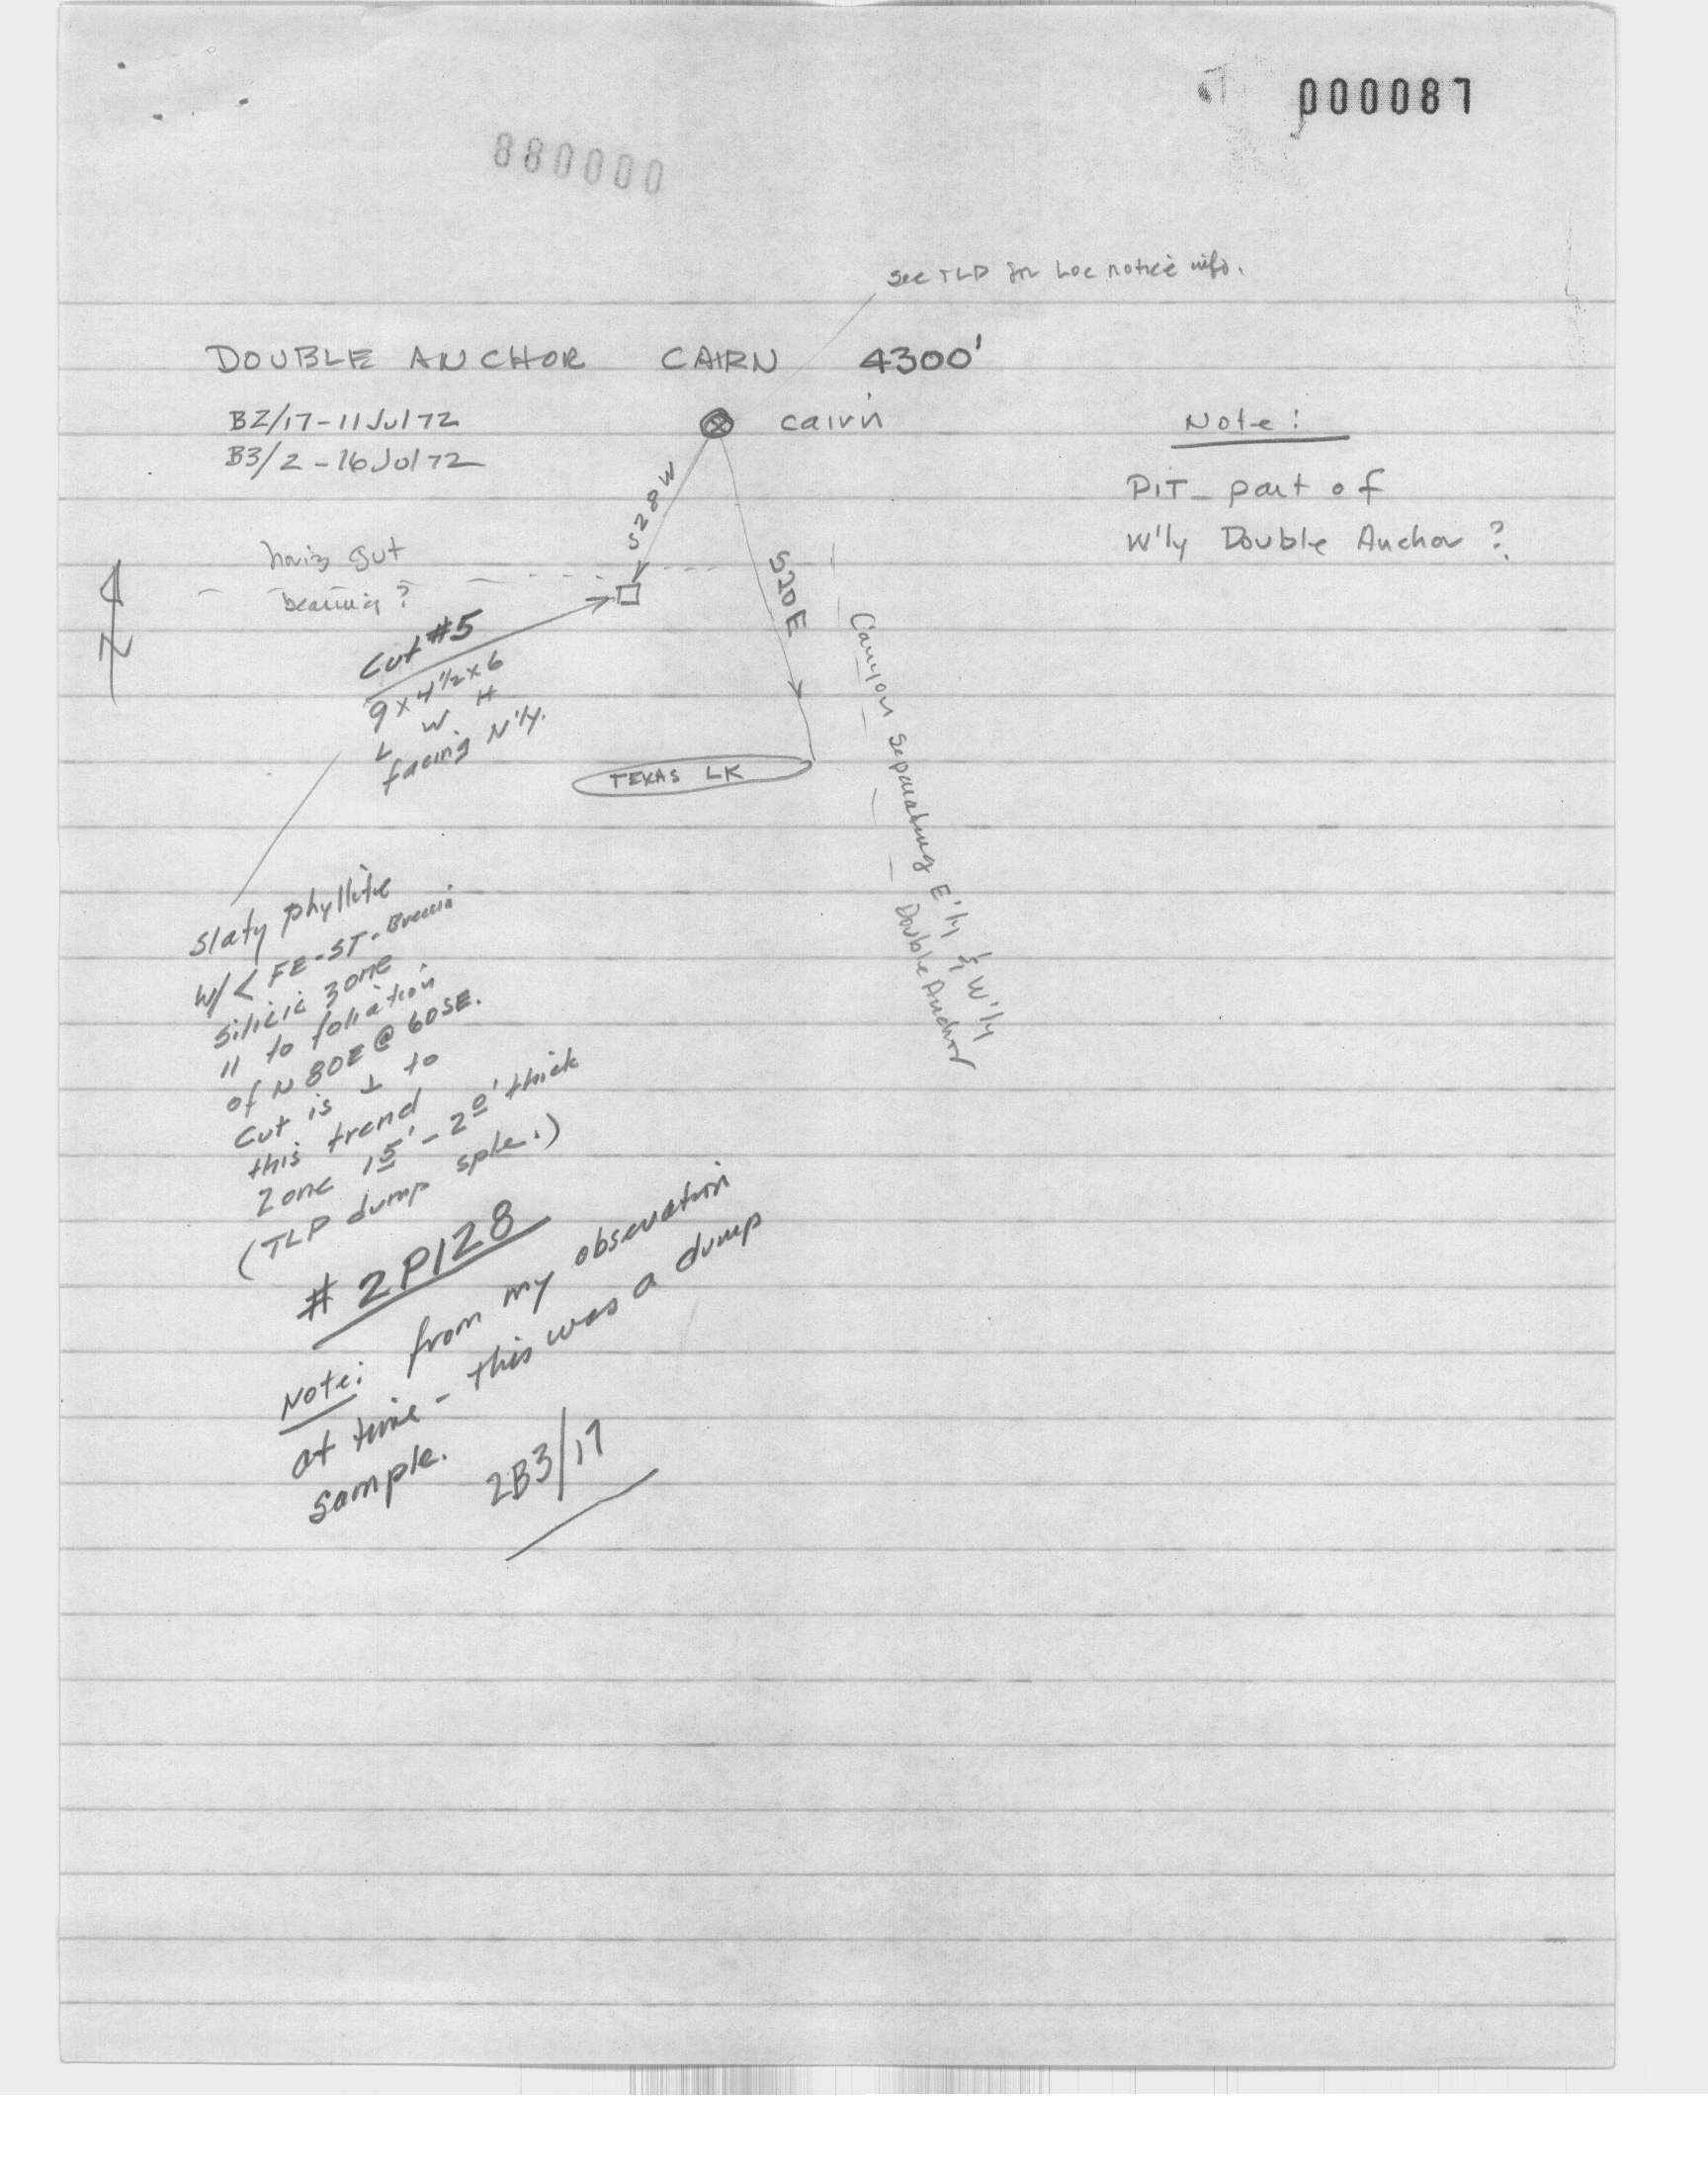 000087
880000
see TLP for Loc notice info.
DOUBLE ANCHOR CAIRN 4300'
B2/17-11Jul72
B3/2-16Jul72
cairn
Note:
PIT- part of
W'ly Double Anchor?
S28W
S20E
horiz gut
bearing?
N
Cut #5
9x4½x6
L W H
facing N'ly.
TEXAS LK
Canyon separating E'ly & W'ly
Double Anchor
slaty phyllite
w/< FE-ST-Breccia
silicic zone
11 to foliation
of N80E@60SE.
Cut is ⊥ to
this trend
Zone 15'-20' thick
(TLP dump sple.)
# 2P128
Note: from my observation
at time - this was a dump
sample.
2B3/17